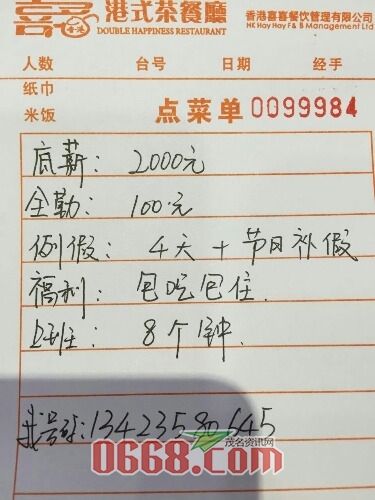 喜喜 香港 港式茶餐廳 香港喜喜餐饮管理有限公司
DOUBLE HAPPINESS RESTAURANT HK Hay Hay F& B Management Ltd
人数 台号 日期 经手
纸巾
米饭 点菜单 0099984
底薪: 2000元
全勤: 100元
例假: 4天 + 节日补假
福利: 包吃包住.
上班: 8个钟.
号码: 13423580645
茂名资讯网
0668.com